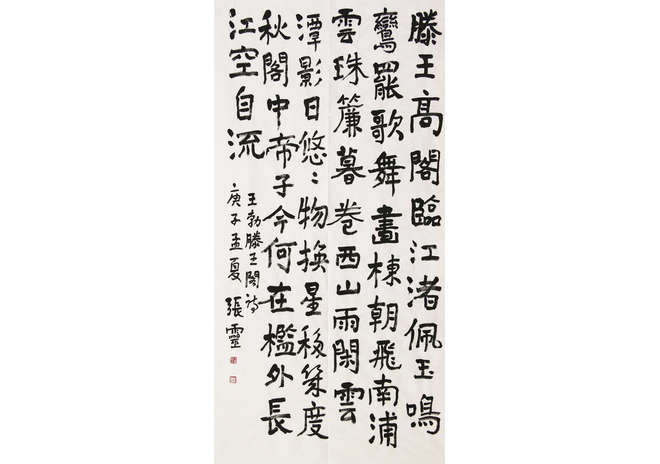 滕王高閣臨江渚佩玉鳴
鸞罷歌舞畫棟朝飛南浦
雲珠簾暮卷西山雨閑雲
潭影日悠〻物換星移幾度
秋閣中帝子今何在檻外長
江空自流
王勃滕王閣詩
庚子孟夏張靈